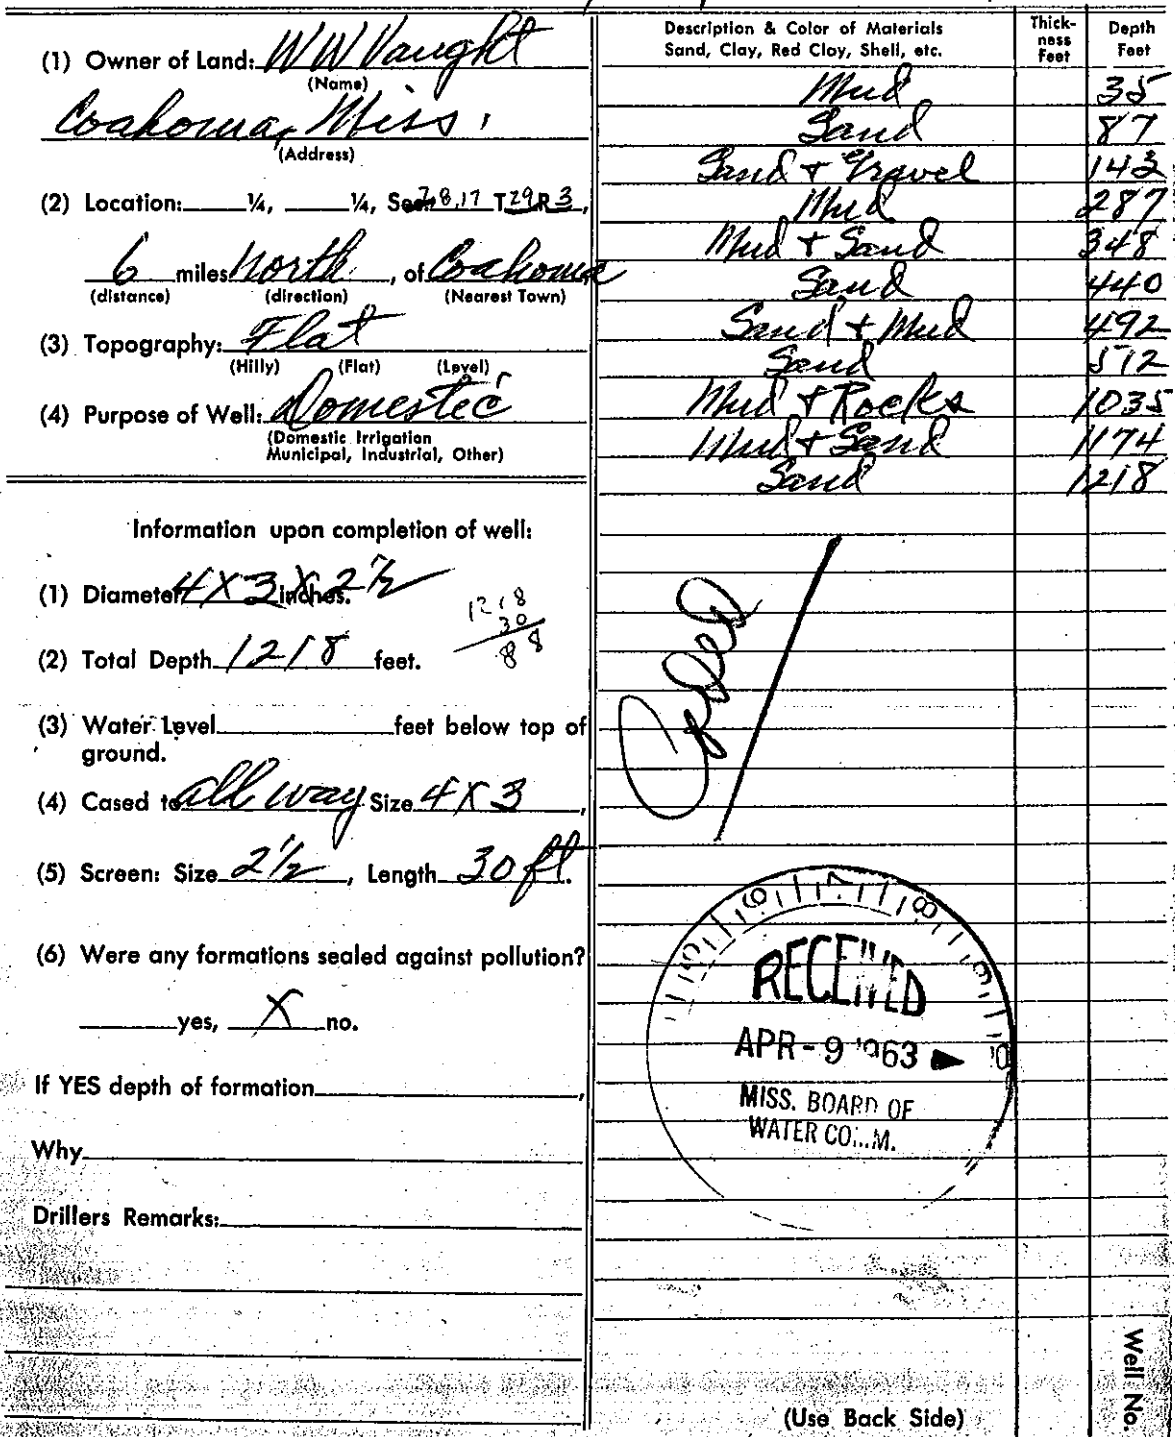 (1) Owner of Land: W W Vaught
(Name)
Coahoma, Miss.
(Address)
(2) Location: ¼, ¼, Sec. 7,8,17 T 29 R 3,
6 miles North, of Coahoma
(distance) (direction) (Nearest Town)
(3) Topography: Flat
(Hilly) (Flat) (Level)
(4) Purpose of Well: Domestic
(Domestic Irrigation
Municipal, Industrial, Other)
Information upon completion of well:
(1) Diameter 4 X 3 X 2½ inches.
1218
30
88
(2) Total Depth 1218 feet.
(3) Water Level feet below top of
ground.
(4) Cased to all way Size 4 X 3,
(5) Screen: Size 2½, Length 30 ft.
(6) Were any formations sealed against pollution?
yes, X no.
If YES depth of formation,
Why
Drillers Remarks:
Description & Color of Materials
Sand, Clay, Red Clay, Shell, etc.
Thick-
ness
Feet
Depth
Feet
Mud 35
Sand 87
Sand + Gravel 143
Mud 287
Mud + Sand 348
Sand 440
Sand + Mud 492
Sand 512
Mud + Rocks 1035
Mud + Sand 1174
Sand 1218
6 7 8
RECEIVED
APR - 9 1963
MISS. BOARD OF
WATER COMM.
(Use Back Side)
Well No.